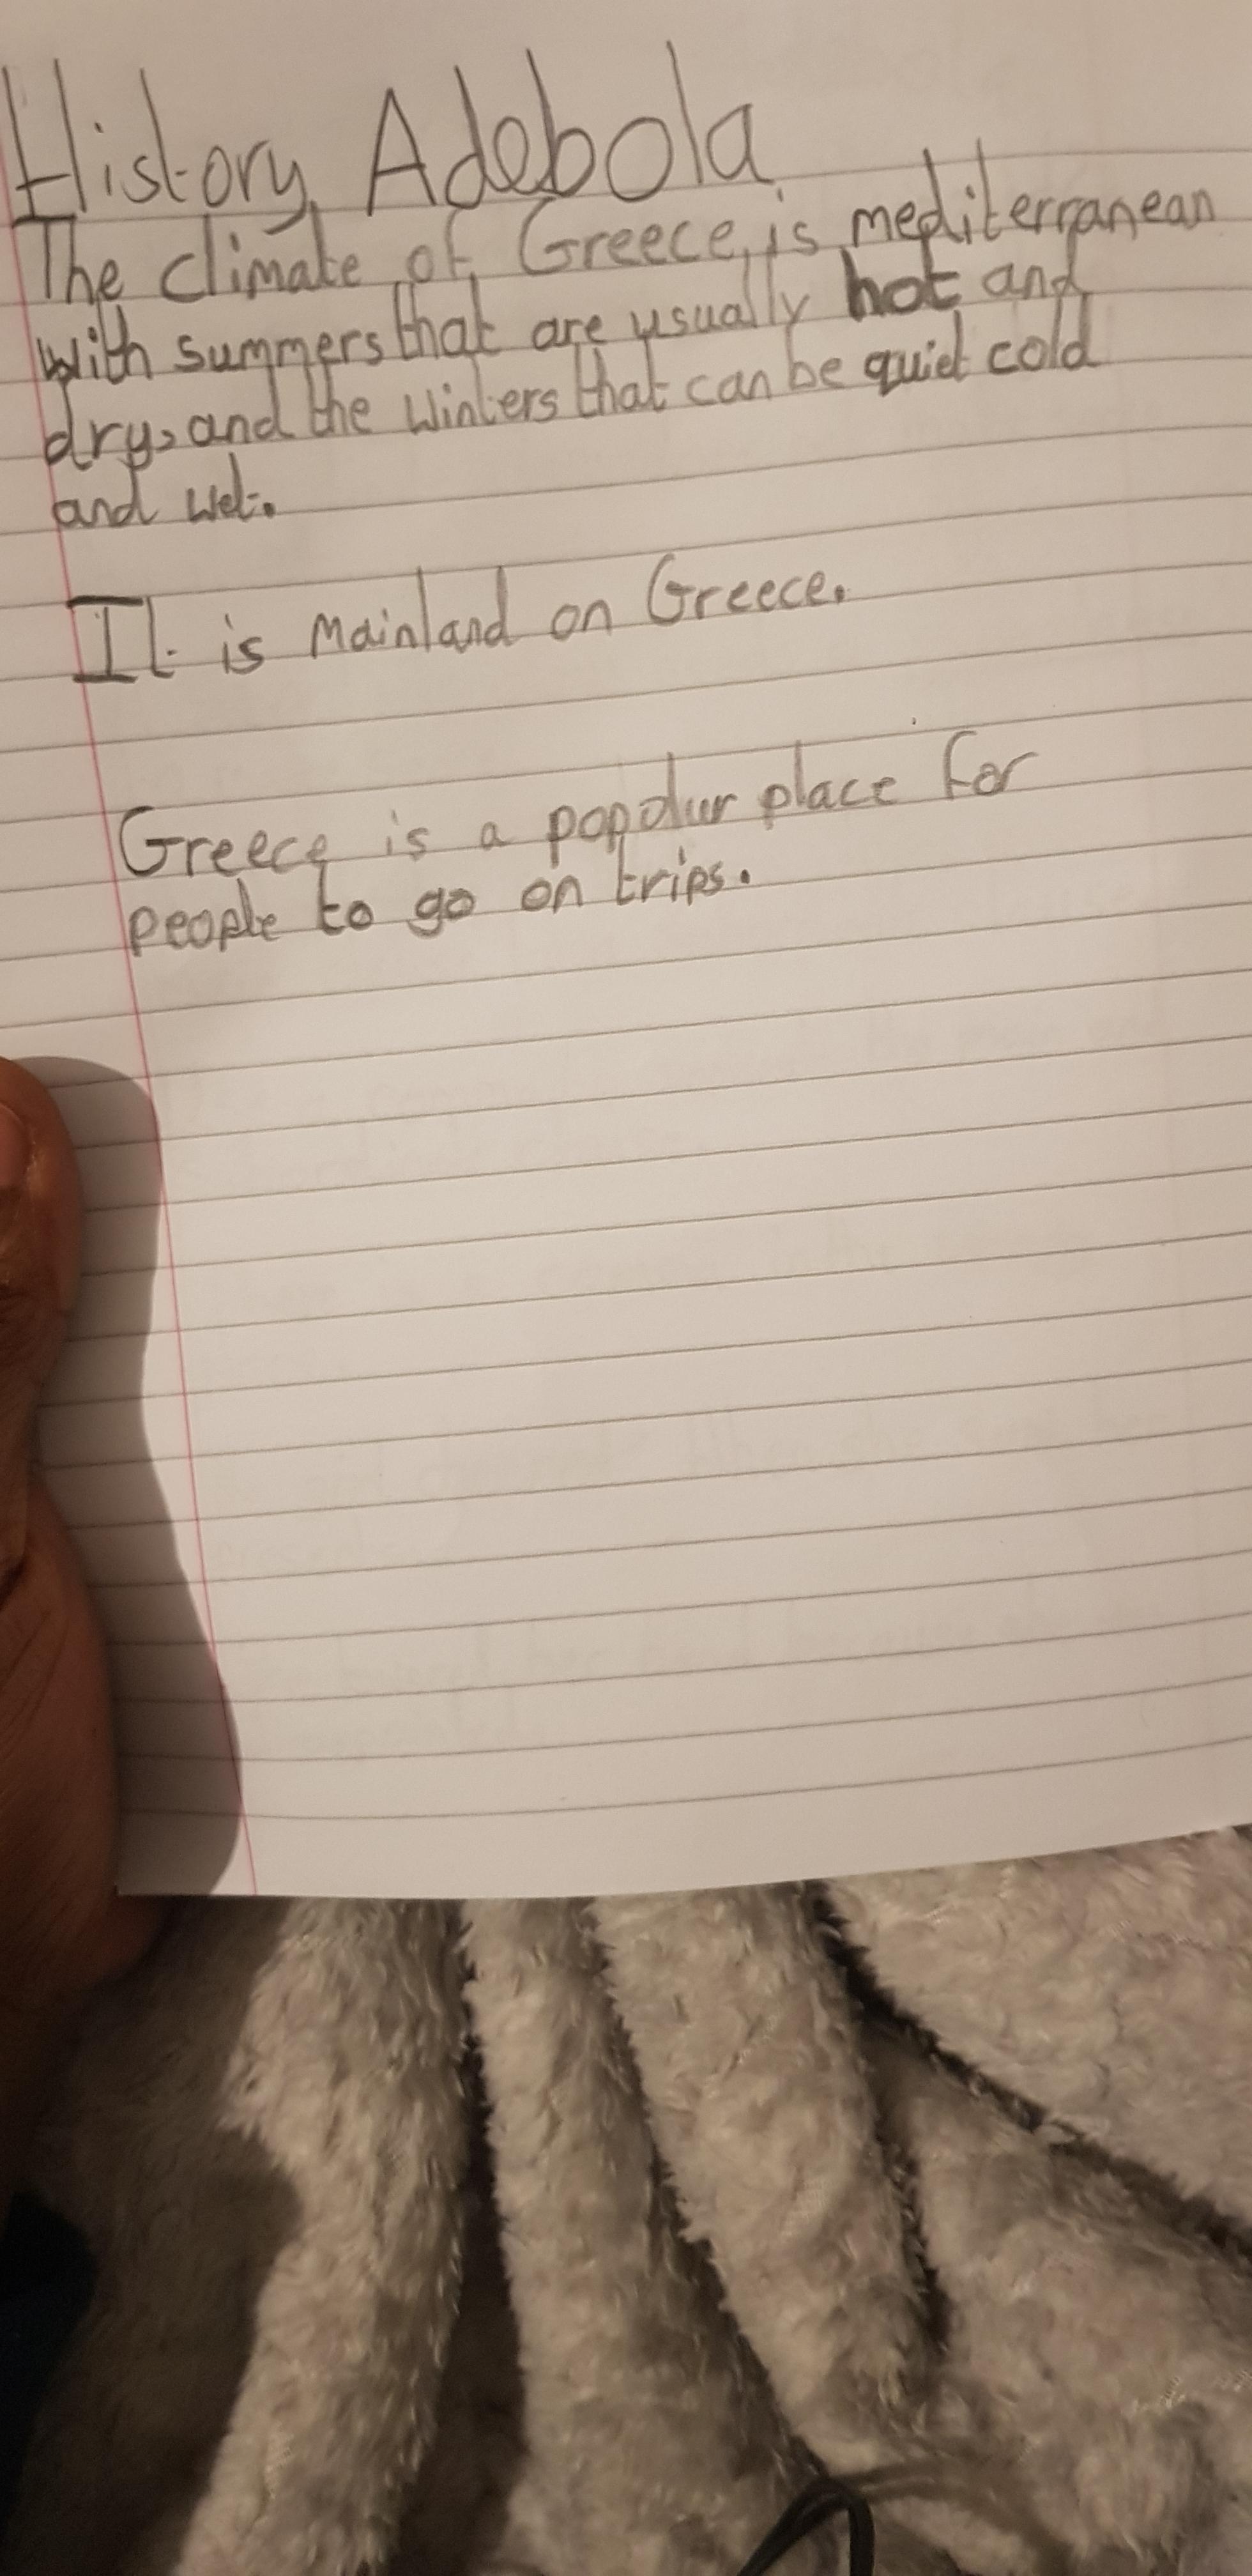 History Adebola
The climate of Greece is mediterranean
with summers that are usually hot and
dry, and the winters that can be quiet cold
and wet.
It is mainland on Greece.
Greece is a popolur place for
people to go on trips.